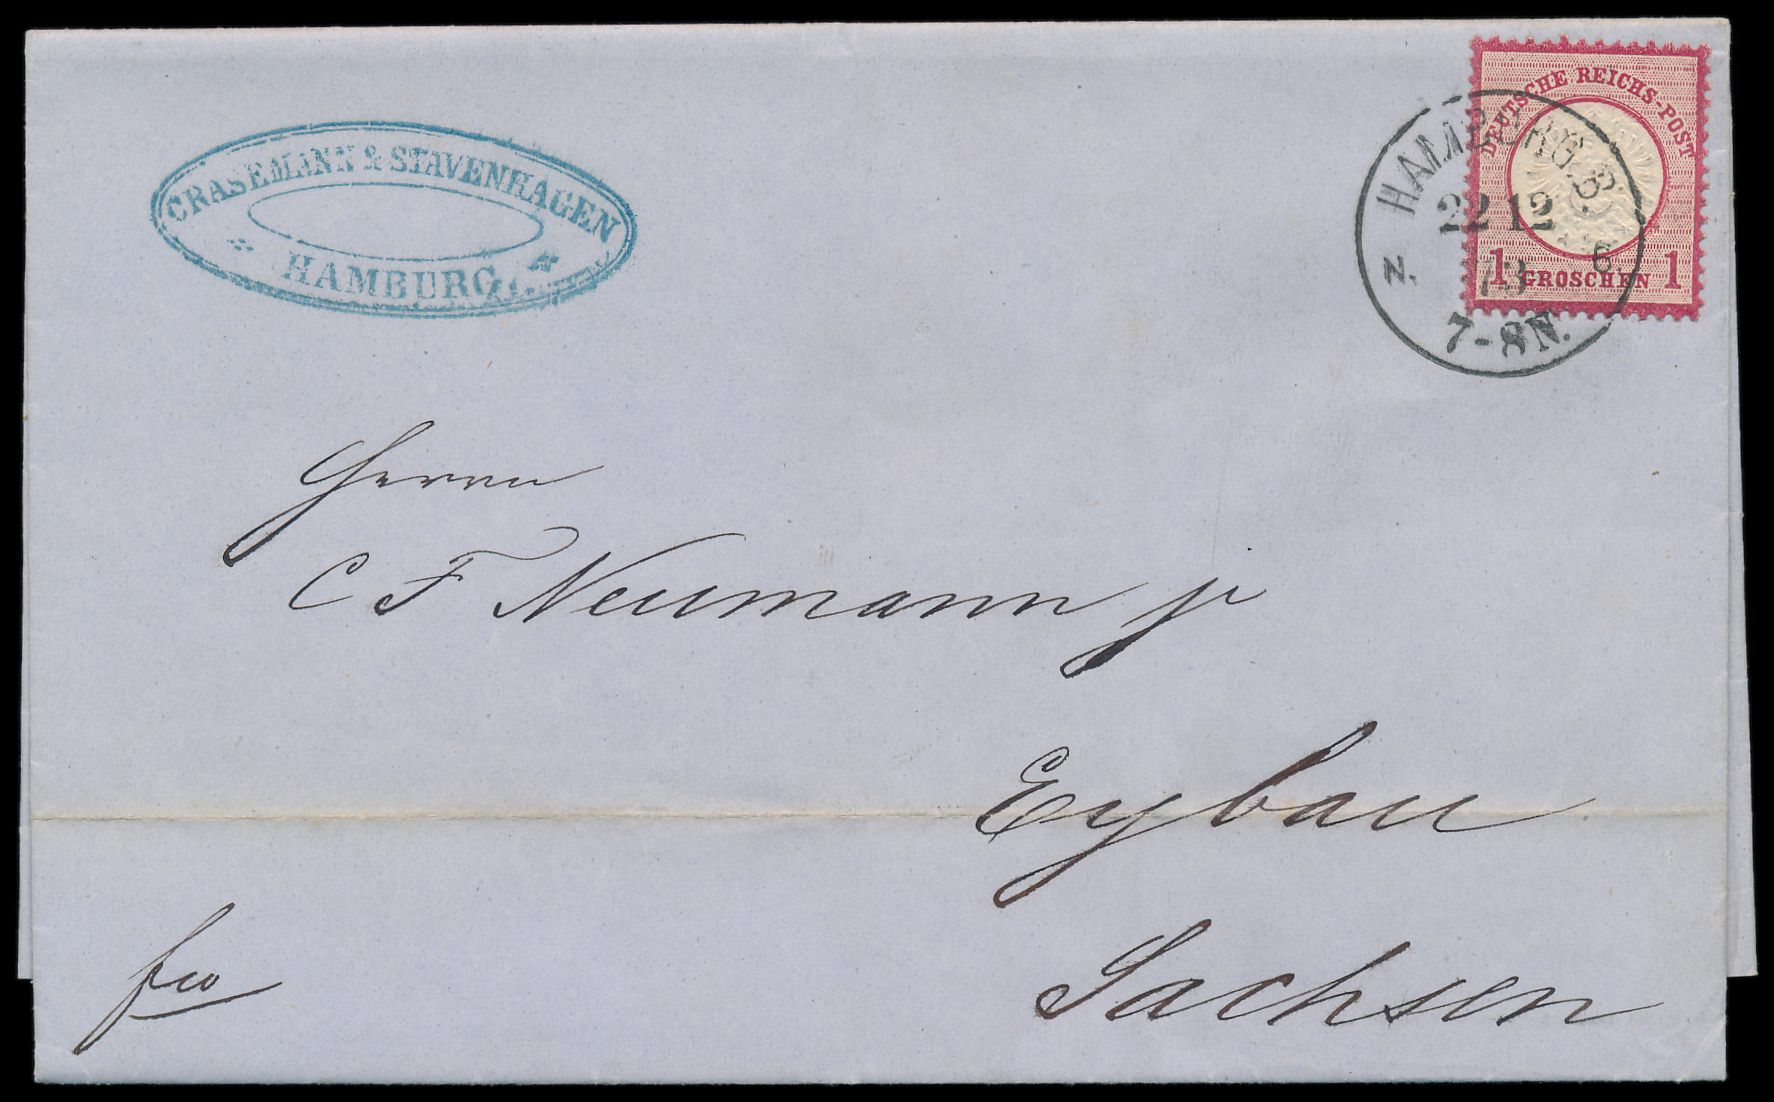 CRASEMANN & STAVENHAGEN
HAMBURG
DEUTSCHE REICHS-POST
1 GROSCHEN 1
HAMBURG
22 12
73
7-8 N.
N. 6
Herrn
C F Neumann jr
Eybau
Sachsen
fco